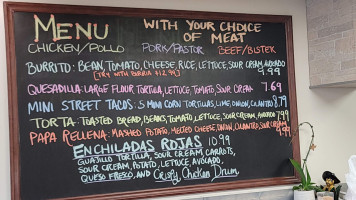 MENU WITH YOUR CHOICE OF MEAT
CHICKEN/POLLO PORK/PASTOR BEEF/BISTEK
BURRITO: BEAN, TOMATO, CHEESE, RICE, LETTUCE, SOUR CREAM, AVOCADO
[TRY WITH BIRRIA $12.99] 9.99
QUESADILLA: LARGE FLOUR TORTILLA, LETTUCE, TOMATO, SOUR CREAM 7.69
MINI STREET TACOS: 5 MINI CORN TORTILLAS, LIME, ONION, CILANTRO 8.79
TORTA: TOASTED BREAD, BEANS, TOMATO, LETTUCE, SOUR CREAM, AVOCADO 7.99
PAPA RELLENA: MASHED POTATO, MELTED CHEESE, ONION, CILANTRO, SOUR CREAM
9.99
ENCHILADAS ROJAS 10.99
GUAJILLO TORTILLA, SOUR CREAM, CARROTS,
SOUR CREAM, POTATO, LETTUCE, AVOCADO,
QUESO FRESCO, AND CRISPY CHICKEN DRUM